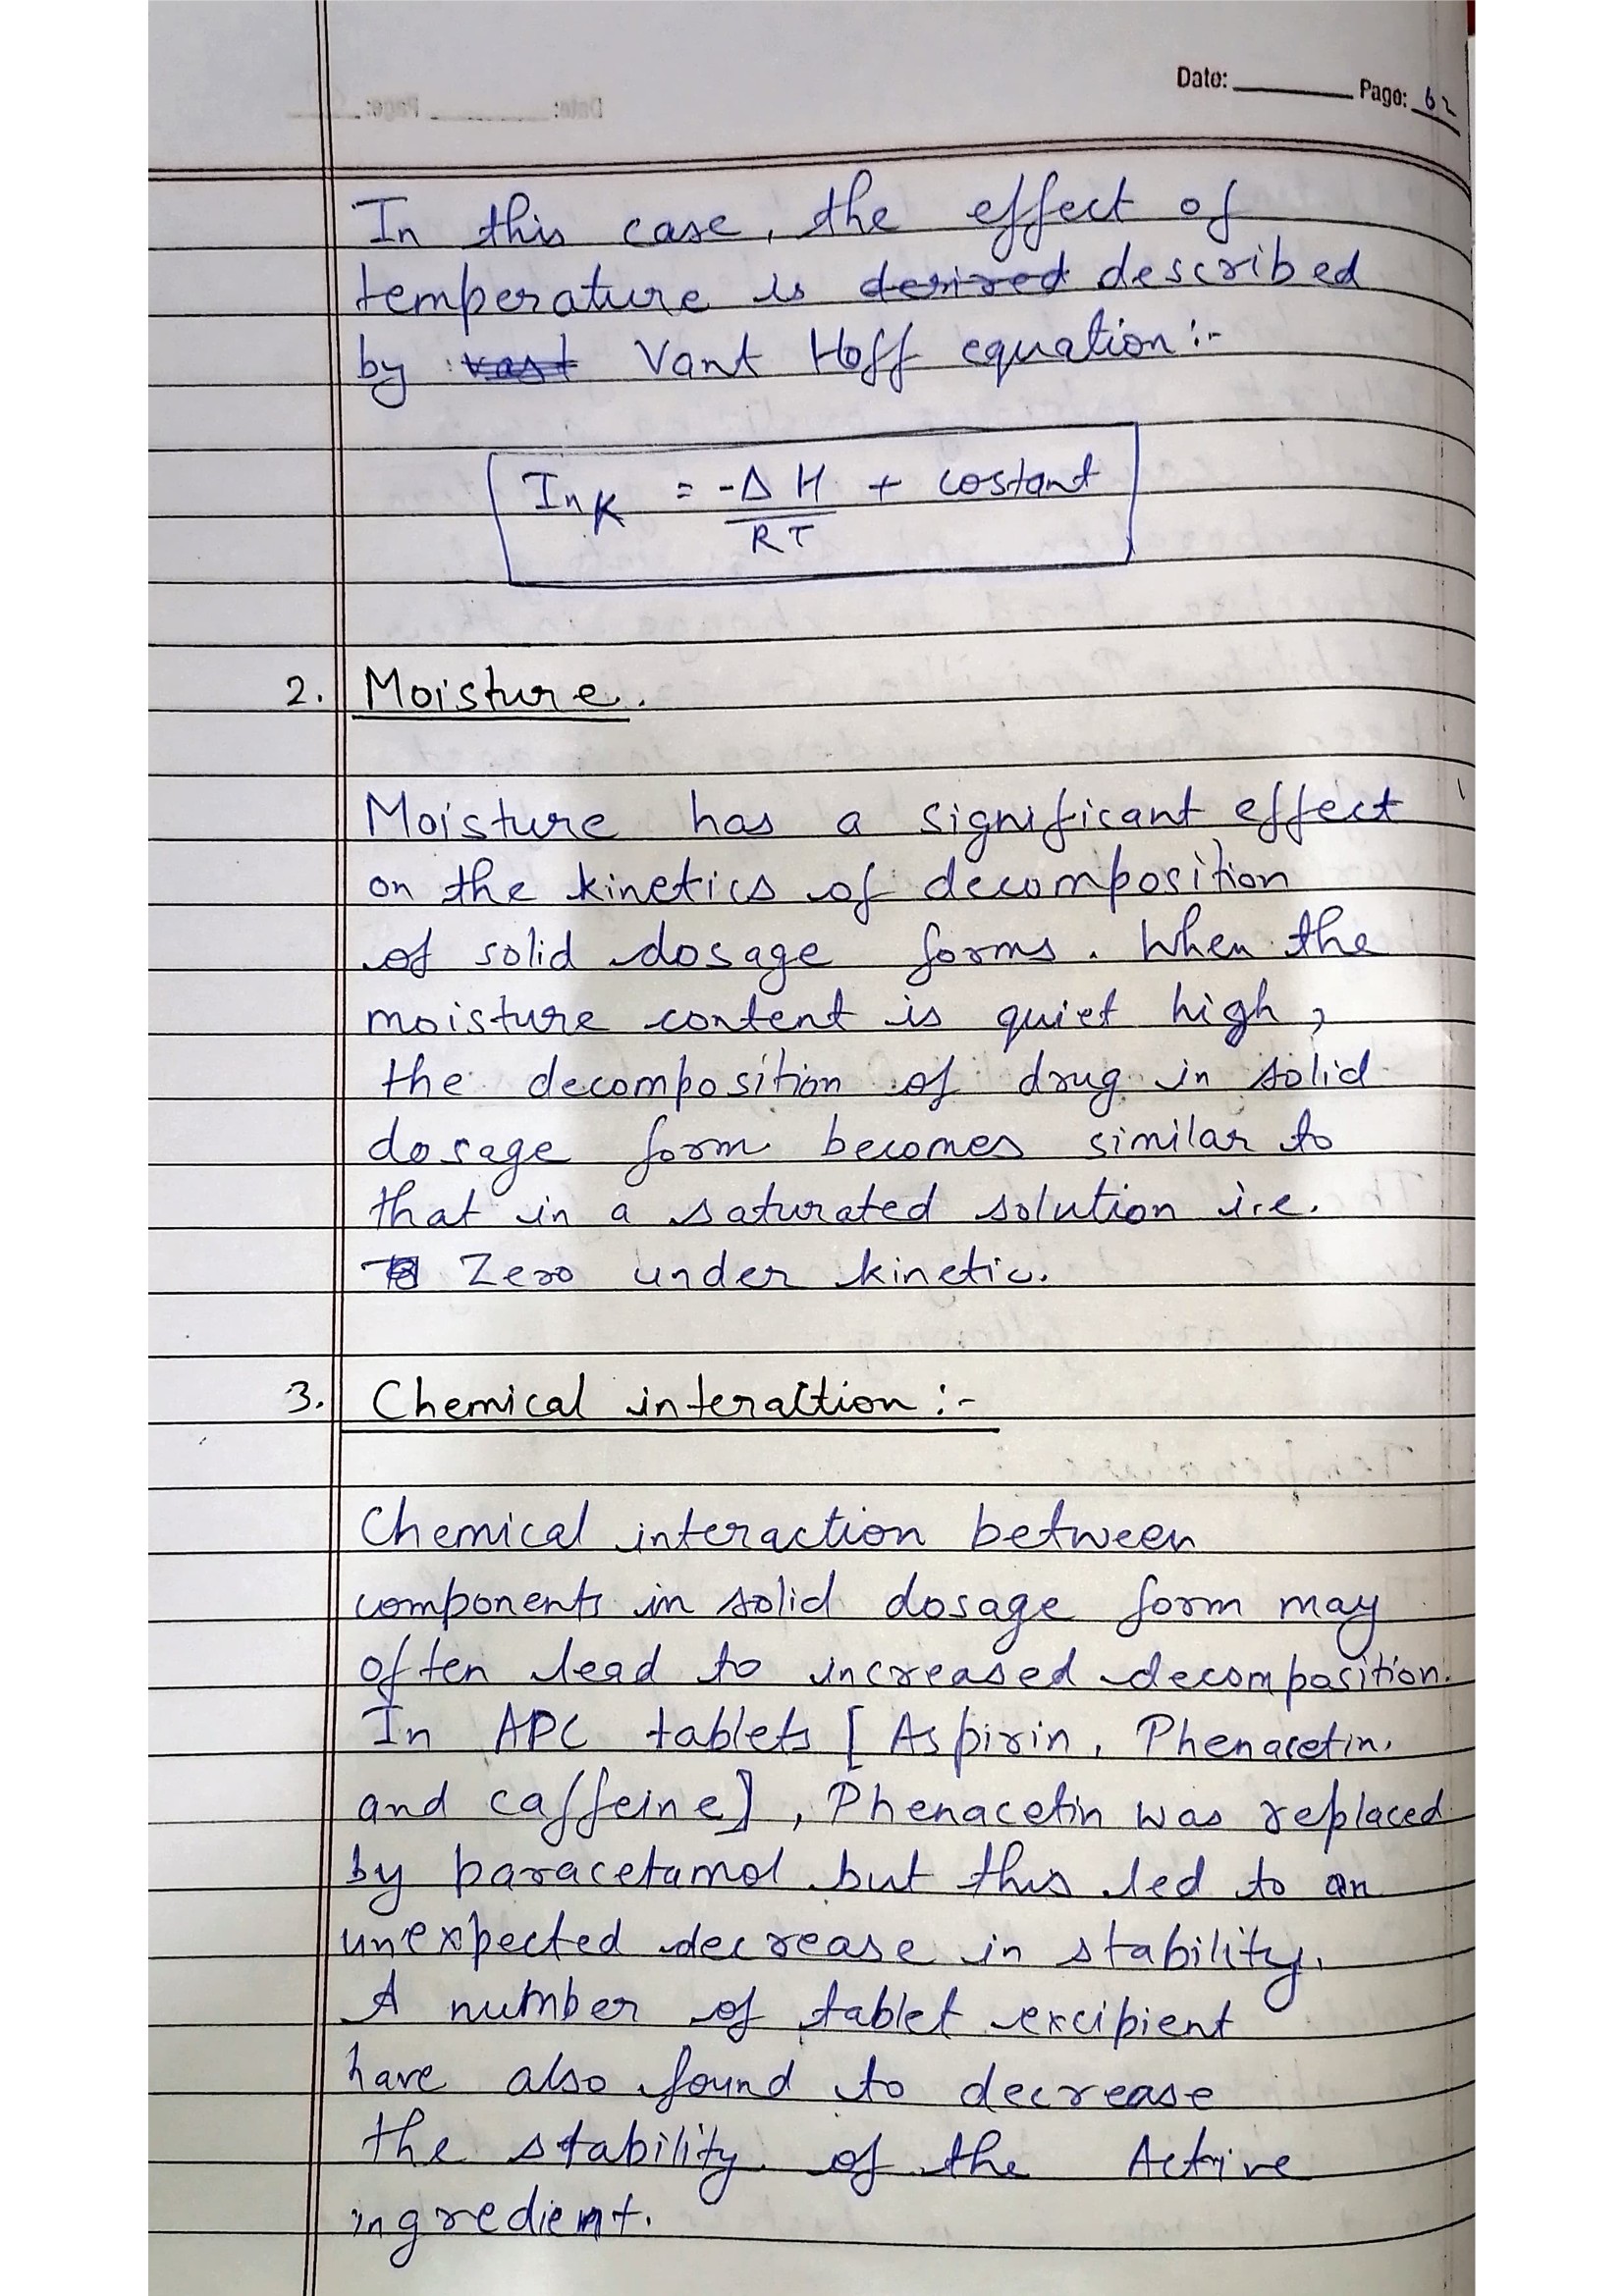 Date: Page: 62
In this case, the effect of
temperature is desired described
by vast Vant Hoff equation :-
In K = -Δ H + costant
RT
2. Moisture.
Moisture has a significant effect
on the kinetics of decomposition
of solid dosage forms. When the
moisture content is quiet high,
the decomposition of drug in solid
dosage form becomes similar to
that in a saturated solution i.e.
Zero under kinetic.
3. Chemical interaction :-
Chemical interaction between
components in solid dosage form may
often lead to increased decomposition.
In APC tablets [Aspirin, Phenacetin,
and caffeine], Phenacetin was replaced
by paracetamol but this led to an
unexpected decrease in stability.
A number of tablet excipient
have also found to decrease
the stability of the Active
ingredient.